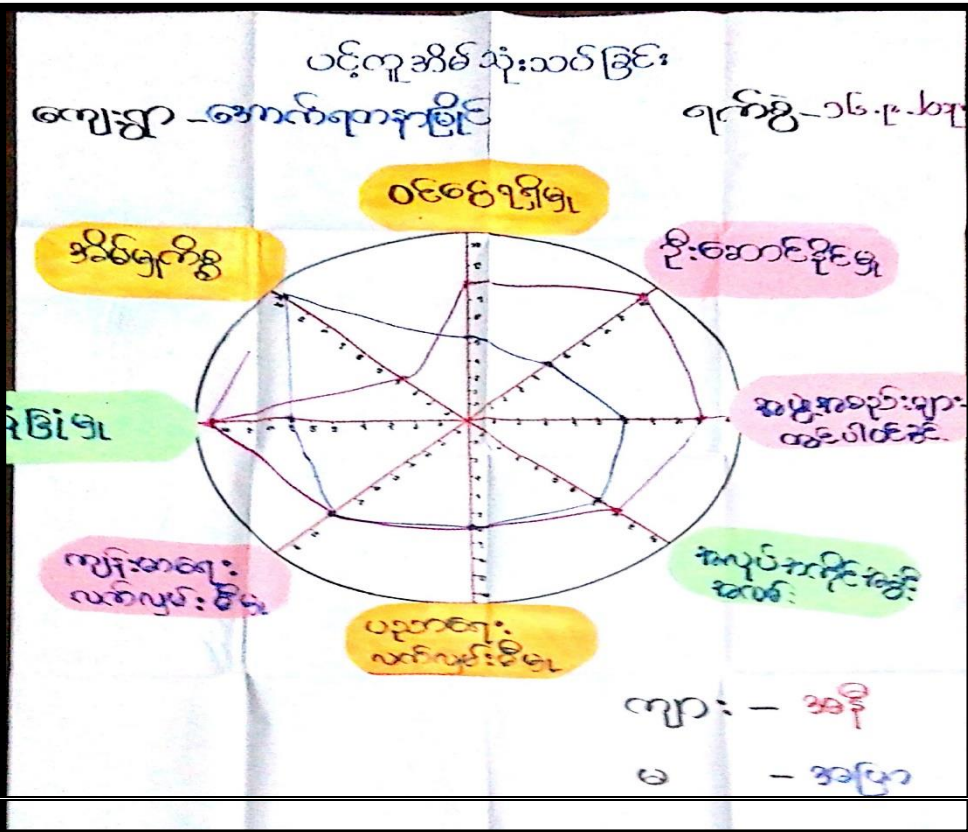 ပင့်ကူအိမ် သုံးသပ်ခြင်း
ကျေးရွာ - အောက်ရတနာမြိုင်
ရက်စွဲ - ၁၆.၉.၂၀၂
ဝင်ငွေရရှိမှု
အိမ်မှုကိစ္စ
ဦးဆောင်နိုင်မှု
အဖွဲ့အစည်းများ
တွင်ပါဝင်ခြင်း
ခြုံမှု
ကျန်းမာရေး
လက်လှမ်းမီမှု
အလုပ်အကိုင်အခွင့်
အလမ်း
ပညာရေး
လက်လှမ်းမီမှု
ကျား - အနီ
မ - အပြာ